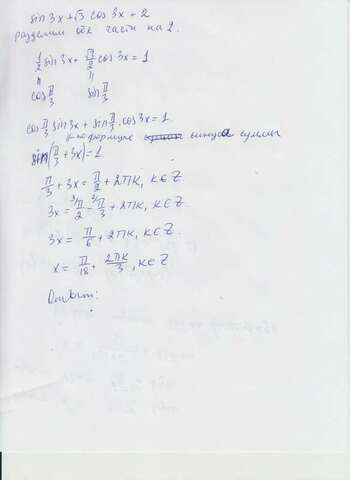 sin 3x + √3 cos 3x = 2
разделим обе части на 2.
1/2 sin 3x + √3/2 cos 3x = 1
" "
cos π/3 sin π/3
cos π/3 sin 3x + sin π/3 · cos 3x = 1
формуле синуса суммы
sin(π/3 + 3x) = 1
π/3 + 3x = π/2 + 2πk, k∈Z
3x = ³⁾π/2 − ²⁾π/3 + 2πk, k∈Z.
3x = π/6 + 2πk, k∈Z
x = π/18 + 2πk/3, k∈Z
Ответ: